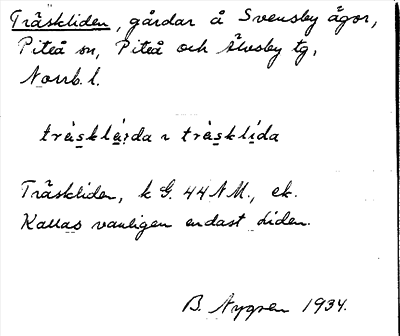 Träskliden, gårdar å Svensby ägor,
Piteå sn, Piteå och Älvsby tg,
Norrb. l.
träsklí̀da
Träskliden, k G. 44 NM., ek.
Kallas vanligen endast Liden.
B. Nygren 1934.